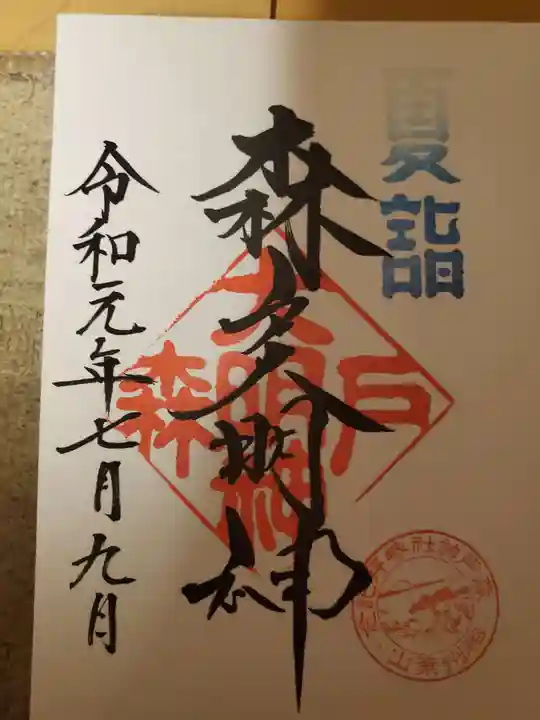 夏詣
森戸大明神
令和元年七月九日